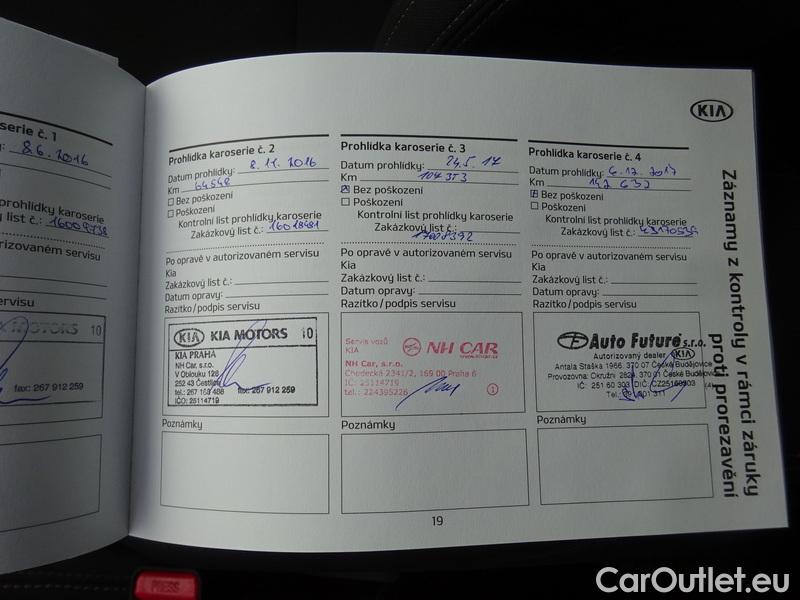 KIA
Záznamy z kontroly v rámci záruky
proti prorezavění
serie č. 1
8.6.2016
list prohlídky karoserie
ý list č.: 16009738
utorizovaném servisu
servisu
MOTORS 10
fax: 267 912 259
Prohlídka karoserie č. 2
Datum prohlídky: 8. 11. 2016
Km 64548
Bez poškození
Poškození
Kontrolní list prohlídky karoserie
Zakázkový list č.: 16018481
Po opravě v autorizovaném servisu
Kia
Zakázkový list č.:
Datum opravy:
Razítko/podpis servisu
KIA KIA MOTORS 10
KIA PRAHA
NH Car, s.r.o.
V Oblouku 128
252 43 Čestlice
tel.: 267 163 488 fax: 267 912 259
IČO: 25114719
Poznámky
Prohlídka karoserie č. 3
Datum prohlídky: 24.5. 17
Km 104 373
Bez poškození
Poškození
Kontrolní list prohlídky karoserie
Zakázkový list č.:
17008392
Po opravě v autorizovaném servisu
Kia
Zakázkový list č.:
Datum opravy:
Razítko/podpis servisu
Servis vozů
KIA
NH CAR
www.nhcar.cz
NH Car, s.r.o.
Chodecká 2341/2, 169 00 Praha 6
IČ: 25114719
tel.: 224395226
1
Poznámky
Prohlídka karoserie č. 4
Datum prohlídky: 6.12. 2017
Km 142 632
Bez poškození
Poškození
Kontrolní list prohlídky karoserie
Zakázkový list č.: 43170539
Po opravě v autorizovaném servisu
Kia
Zakázkový list č.:
Datum opravy:
Razítko/podpis servisu
Auto Future s.r.o.
Autorizovaný dealer KIA
Antala Staška 1966, 370 07 České Budějovice
Provozovna: Okružní 2824, 370 01 České Budějovice
IČ: 251 60 303 DIČ: CZ25160303
Poznámky
19
PRESS
CarOutlet.eu